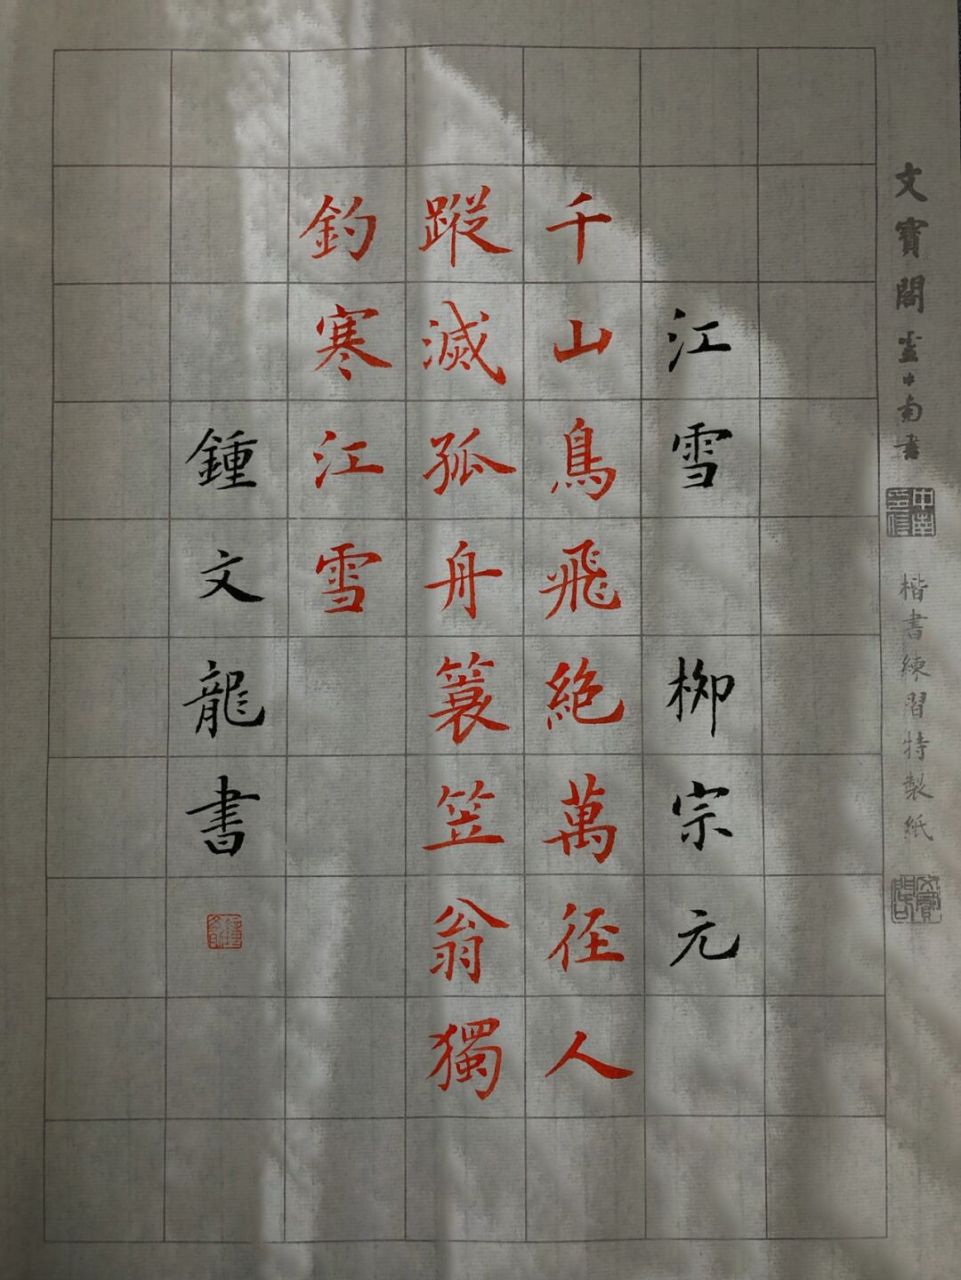 文寶閣 盧中南書
中南印信
楷書練習特製紙
文寶閣
江雪 柳宗元
千山鳥飛絕萬徑人
蹤滅孤舟簑笠翁獨
釣寒江雪
鍾文龍書